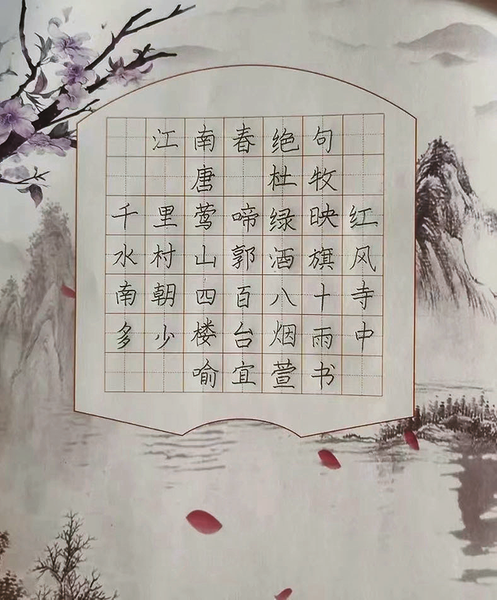 江南春绝句
唐 杜牧
千里莺啼绿映红
水村山郭酒旗风
南朝四百八十寺
多少楼台烟雨中
喻宜萱书